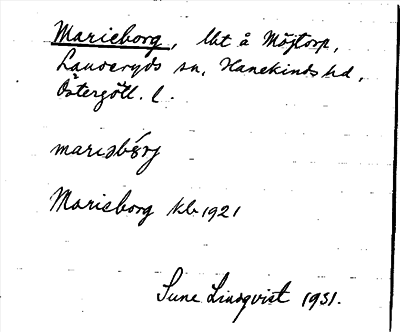 Marieborg, lht å Möjtorp,
Landeryds sn, Hanekinds hd,
Östergötl. l.
Marieborg kb 1921
Sune Lindqvist 1931.